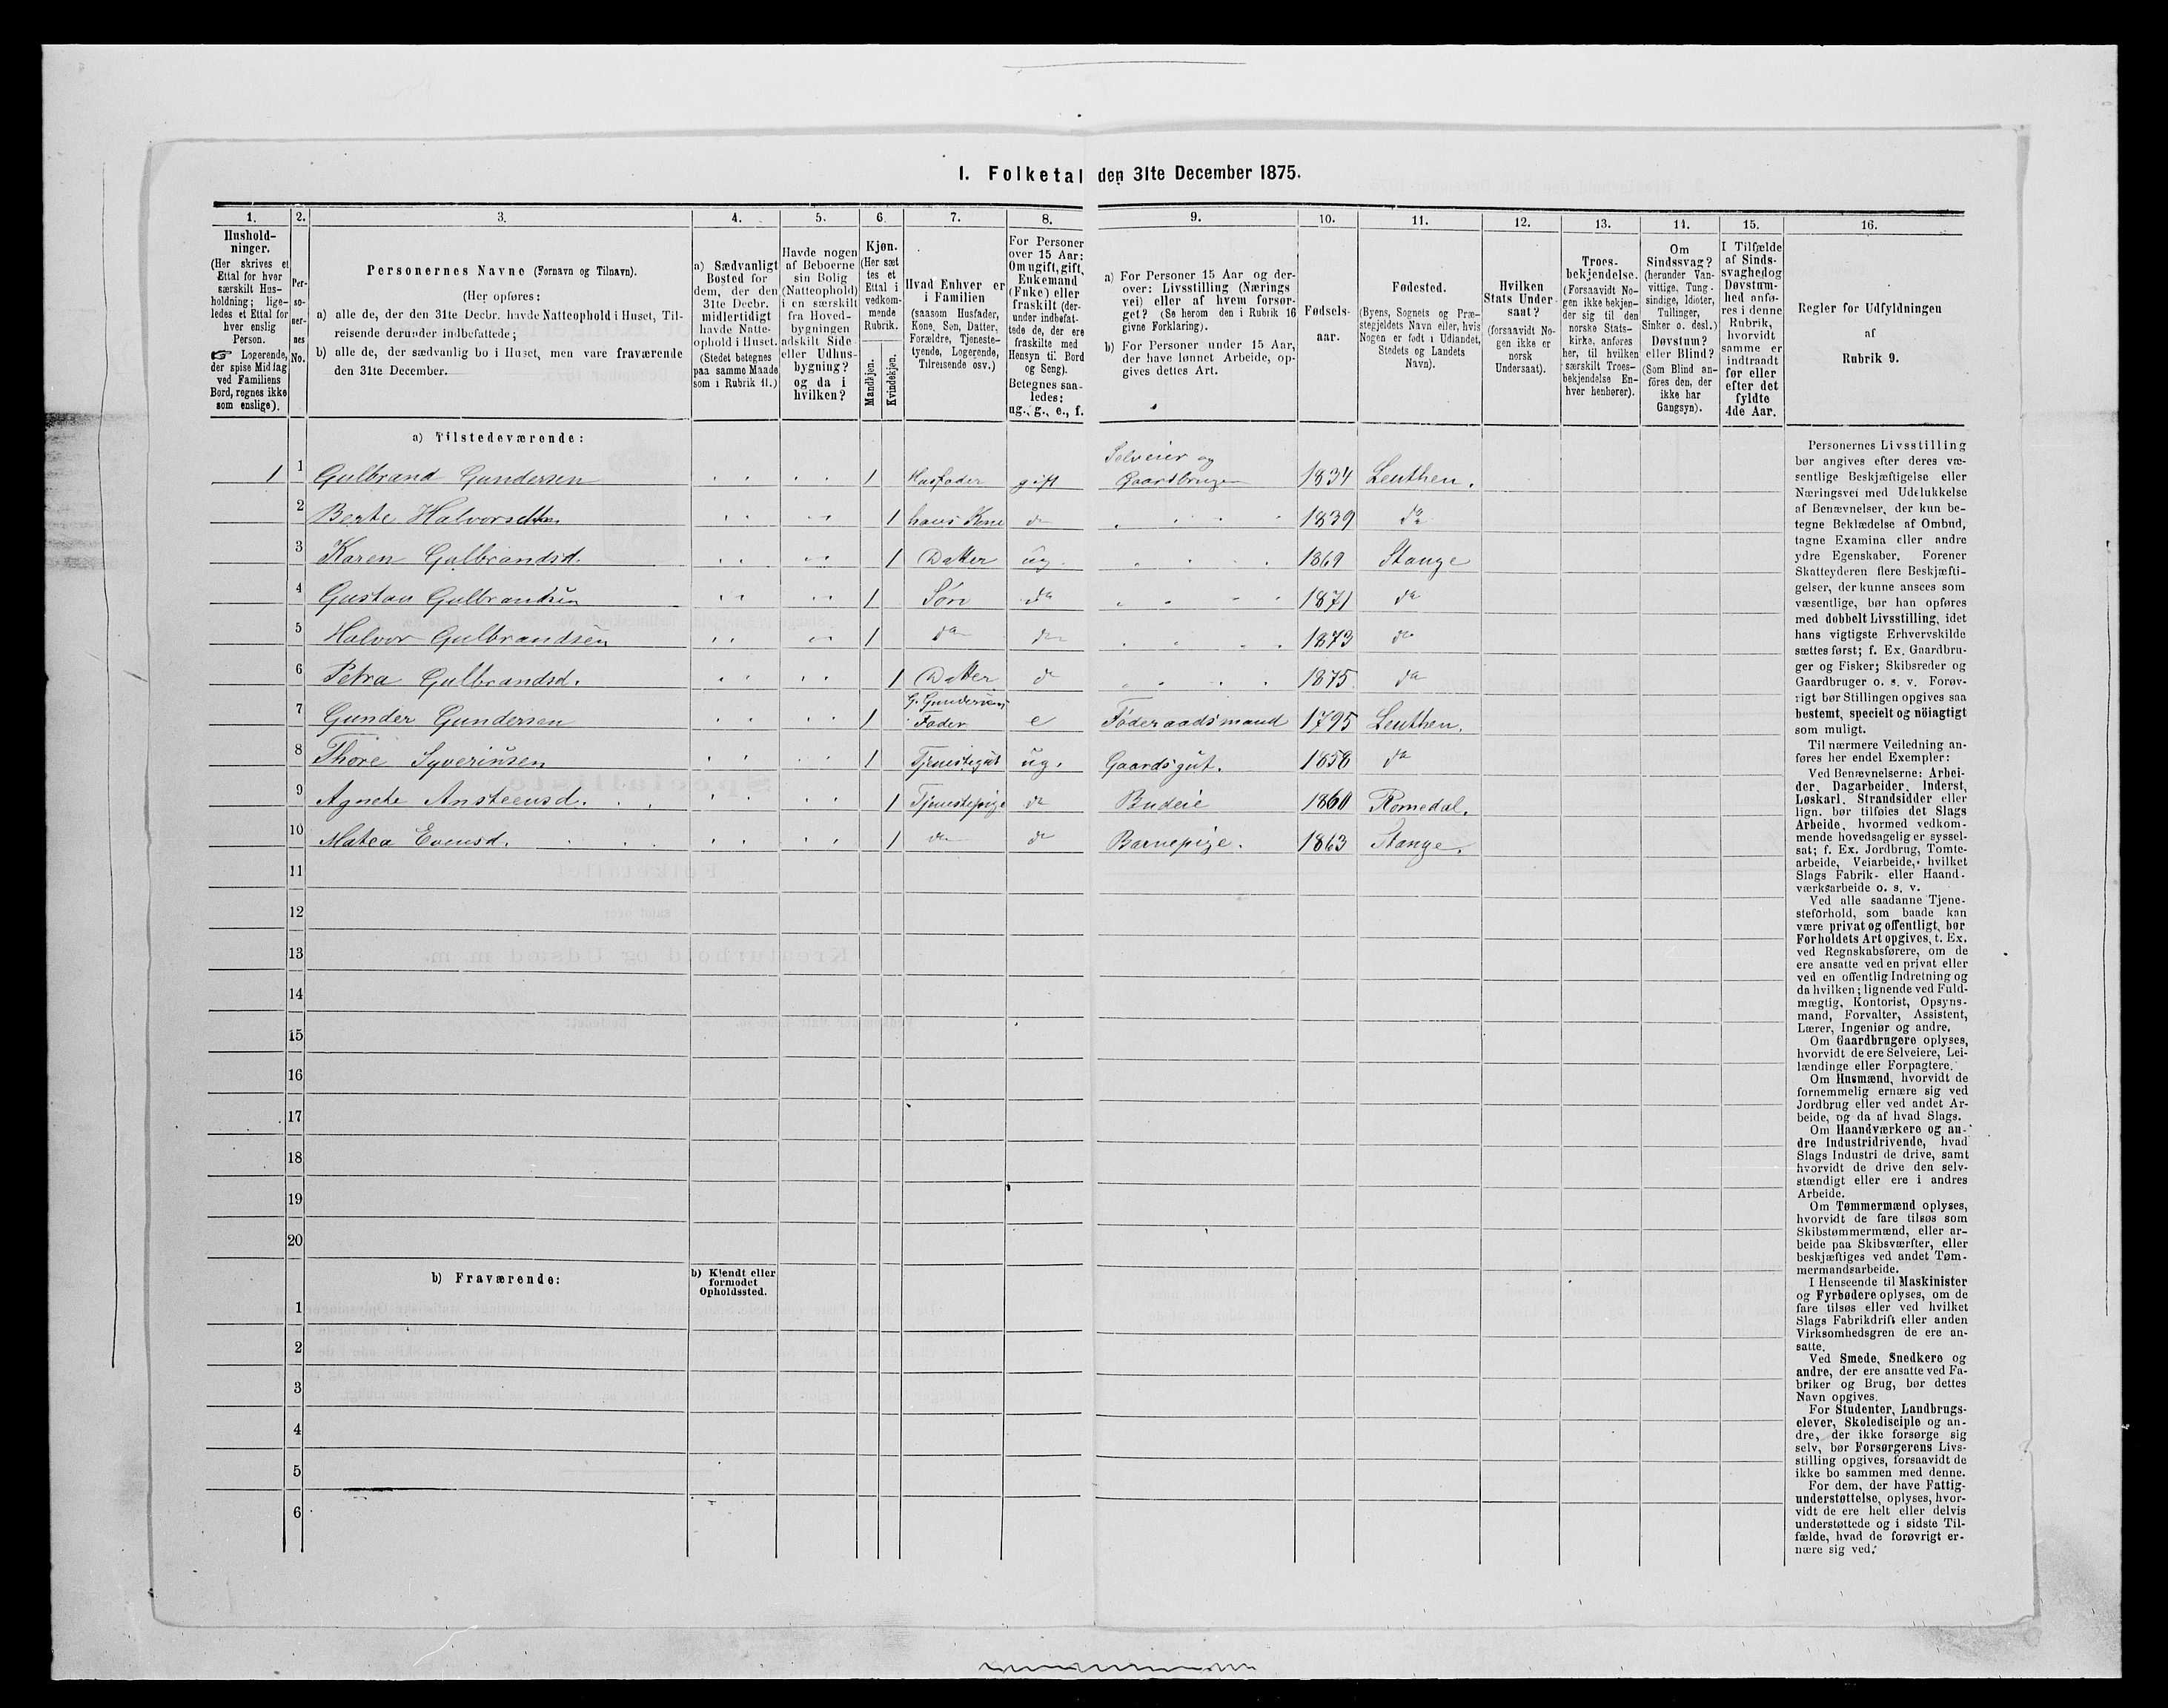 I. Folketal den 31te December 1875.
1. 2. 3. 4. 5. 6. 7. 8. 9. 10. 11. 12. 13. 14. 15. 16.
Hushold-
ninger.
(Her skrives et
Ettal for hver
særskilt Hus-
holdning; lige-
ledes et Ettal for
hver enslig
Person.
☞ Logerende,
der spise Middag
ved Familiens
Bord, regnes ikke
som enslige).
Per-
so-
ner-
nes
No.
Personernes Navne (Fornavn og Tilnavn).
(Her opføres:
a) alle de, der den 31te Decbr. havde Natteophold i Huset, Til-
reisende derunder indbefattede;
b) alle de, der sædvanlig bo i Huset, men vare fraværende
den 31te December.
a) Sædvanligt
Bosted for
dem, der den
31te Decbr.
midlertidigt
havde Natte-
ophold i Huset.
(Stedet betegnes
paa samme Maade
som i Rubrik 11.)
Havde nogen
af Beboerne
sin Bolig
(Natteophold)
i en særskilt
fra Hoved-
bygningen
adskilt Side-
eller Udhus-
bygning?
og da i
hvilken?
Kjøn.
(Her sæt-
tes et
Ettal i
vedkom-
mende
Rubrik.
Mandkjøn.
Kvindekjøn.
Hvad Enhver er
i Familien
(saasom Husfader,
Kone, Søn, Datter,
Forældre, Tjeneste-
tyende, Logerende,
Tilreisende osv.)
For Personer
over 15 Aar:
Om ugift, gift,
Enkemand
(Enke) eller
fraskilt (der-
under indbefat-
tede de, der ere
fraskilte med
Hensyn til Bord
og Seng).
Betegnes saa-
ledes:
ug., g., e., f.
a) For Personer 15 Aar og der-
over: Livsstilling (Nærings-
vei) eller af hvem forsør-
get? (Se herom den i Rubrik 16
givne Forklaring).
b) For Personer under 15 Aar,
der have lønnet Arbeide, op-
gives dettes Art.
Fødsels-
aar.
Fødested.
(Byens, Sognets og Præ-
stegjeldets Navn eller, hvis
Nogen er født i Udlandet,
Stedets og Landets
Navn).
Hvilken
Stats Under-
saat?
(forsaavidt No-
gen ikke er
norsk
Undersaat).
Troes-
bekjendelse.
(Forsaavidt No-
gen ikke bekjen-
der sig til den
norske Stats-
kirke, anføres
her, til hvilken
særskilt Troes-
bekjendelse En-
hver henhører).
Om
Sindssvag?
(herunder Van-
vittige, Tung-
sindige, Idioter,
Tullinger,
Sinker o. desl.)
Døvstum?
eller Blind?
(Som Blind an-
føres den, der
ikke har
Gangsyn).
I Tilfælde
af Sinds-
svaghed og
Døvstum-
hed anfø-
res i denne
Rubrik,
hvorvidt
samme er
indtraadt
før eller
efter det
fyldte
4de Aar.
Regler for Udfyldningen
af
Rubrik 9.
a) Tilstedeværende:
Selveier og
1 1 Gulbrand Gundersen 1 Husfader gift Gaardbruger 1834 Leuthen.
2 Berte Halvorsdtter 1 hans Kone do 1839 do
3 Karen Gulbrandsd. 1 Datter ug 1869 Stange
4 Gustav Gulbrandsen 1 Søn do 1871 do
5 Halvor Gulbrandsen 1 do do 1873 do
6 Petra Gulbrandsd. 1 Datter do 1875 do
G. Gundersens
7 Gunder Gundersen 1 Fader e Føderaadsmand 1795 Leuthen.
8 Thore Syverinsen 1 Tjenestegut ug. Gaardsgut. 1858 do
9 Agnete Ansteensd. 1 Tjenestepige do Budeie 1860 Romedal.
10 Matea Evensd. 1 do do Barnepige. 1863 Stange.
11
12
13
14
15
16
17
18
19
20
b) Fraværende:
b) Kjendt eller
formodet
Opholdssted.
1
2
3
4
5
6
Personernes Livsstilling
bør angives efter deres væ-
sentlige Beskjæftigelse eller
Næringsvei med Udelukkelse
af Benævnelser, der kun be-
tegne Beklædelse af Ombud,
tagne Examina eller andre
ydre Egenskaber. Forener
Skatteyderen flere Beskjæfti-
gelser, der kunne ansees som
væsentlige, bør han opføres
med dobbelt Livsstilling, idet
hans vigtigste Erhvervskilde
sættes først; f. Ex. Gaardbru-
ger og Fisker; Skibsreder og
Gaardbruger o. s. v. Forøv-
rigt bør Stillingen opgives saa
bestemt, specielt og nöiagtigt
som muligt.
Til nærmere Veiledning an-
føres her endel Exempler:
Ved Benævnelserne: Arbei-
der, Dagarbeider, Inderst,
Løskarl, Strandsidder eller
lign. bør tilføies det Slags
Arbeide, hvormed vedkom-
mende hovedsagelig er syssel-
sat; f. Ex. Jordbrug, Tomte-
arbeide, Veiarbeide, hvilket
Slags Fabrik- eller Haand-
værksarbeide o. s. v.
Ved alle saadanne Tjene-
steforhold, som baade kan
være privat og offentligt, bør
Forholdets Art opgives, t. Ex.
ved Regnskabsførere, om de
ere ansatte ved en privat eller
ved en offentlig Indretning og
da hvilken; lignende ved Fuld-
mægtig, Kontorist, Opsyns-
mand, Forvalter, Assistent,
Lærer, Ingeniør og andre.
Om Gaardbrugere oplyses,
hvorvidt de ere Selveiere, Lei-
lændinge eller Forpagtere.
Om Husmænd, hvorvidt de
fornemmelig ernære sig ved
Jordbrug eller ved andet Ar-
beide, og da af hvad Slags.
Om Haandværkere og an-
dre Industridrivende, hvad
Slags Industri de drive, samt
hvorvidt de drive den selv-
stændigt eller ere i andres
Arbeide.
Om Tømmermænd oplyses,
hvorvidt de fare tilsøs som
Skibstømmermænd, eller ar-
beide paa Skibsværfter, eller
beskjæftiges ved andet Tøm-
mermandsarbeide.
I Henseende til Maskinister
og Fyrbødere oplyses, om de
fare tilsøs eller ved hvilket
Slags Fabrikdrift eller anden
Virksomhedsgren de ere an-
satte.
Ved Smede, Snedkere og
andre, der ere ansatte ved Fa-
briker og Brug, bør dettes
Navn opgives.
For Studenter, Landbrugs-
elever, Skoledisciple og an-
dre, der ikke forsørge sig
selv, bør Forsørgerens Livs-
stilling opgives, forsaavidt de
ikke bo sammen med denne.
For dem, der have Fattig-
understøttelse, oplyses, hvor-
vidt de ere helt eller delvis
understøttede og i sidste Til-
fælde, hvad de forøvrigt er-
nære sig ved.